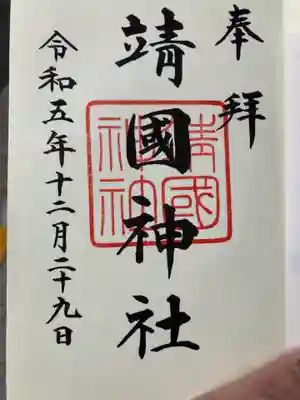 奉拝
靖國神社
靖國神社
令和五年十二月二十九日